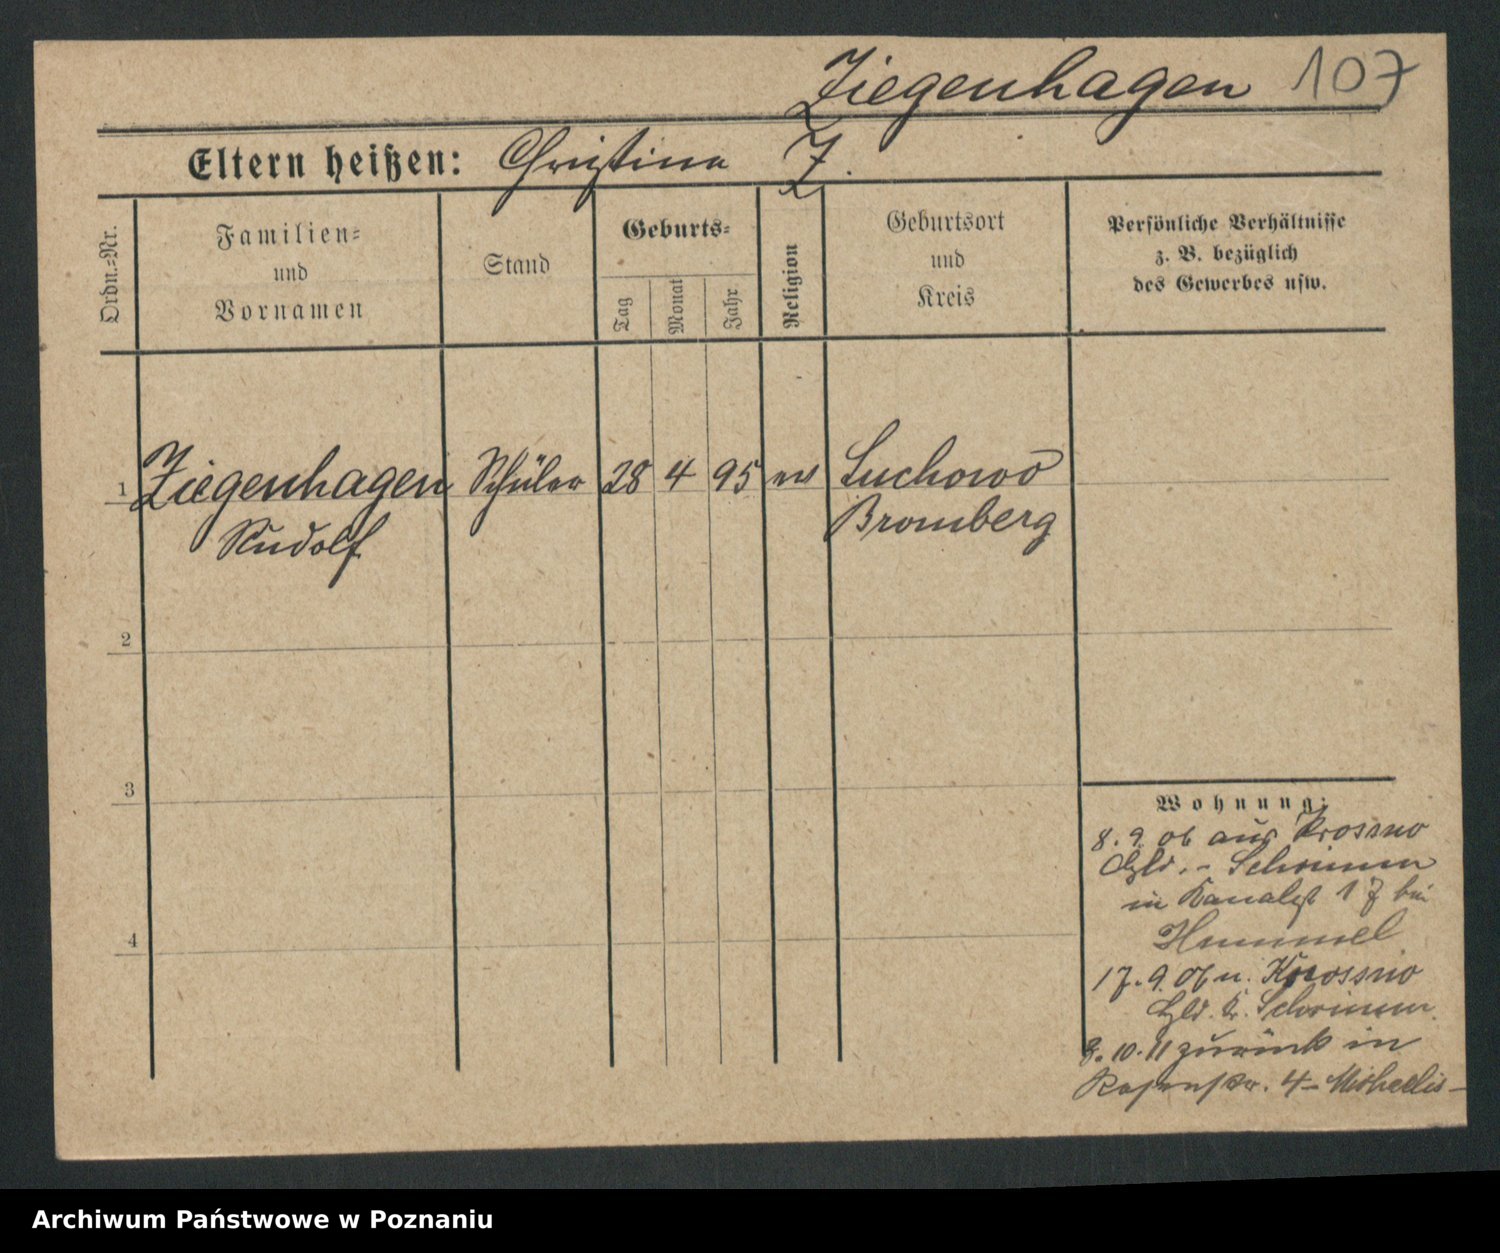 Ziegenhagen 107
Eltern heißen: Christine Z.
Ordn.-Nr.
Familien-
und
Vornamen
Stand
Geburts-
Tag
Monat
Jahr
Religion
Geburtsort
und
Kreis
Persönliche Verhältnisse
z. B. bezüglich
des Gewerbes usw.
1 Ziegenhagen Schüler 28 4 95 ev Luchowo
Rudolf Bromberg
2
3
4
Wohnung:
8. 9. 06 aus Krossno
Hld. - Schrimm
in Kanalst 17 bei
Hummel
17. 9. 06 n. Krossno
Hld. Kr. Schrimm.
3. 10. 11 zurück in
Rosenstr. 4 - Michaelis -
Archiwum Państwowe w Poznaniu